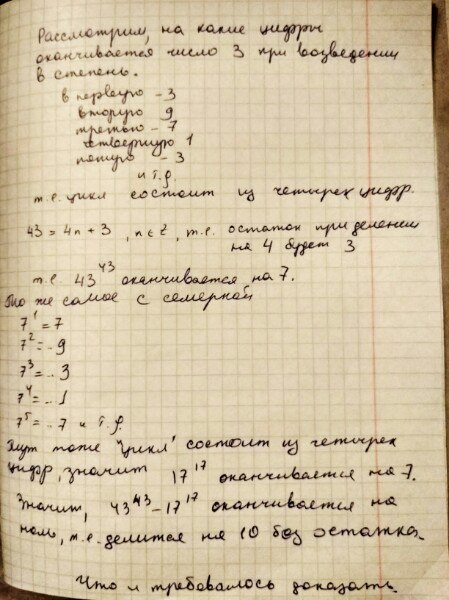 Рассмотрим, на какие цифры
оканчивается число 3 при возведении
в степень.
в первую - 3
вторую 9
третью - 7
четвертую 1
пятую - 3
и т.д.
т.е. цикл состоит из четырех цифр.
43 = 4n + 3, n ∈ Z, т.е. остаток при делении
на 4 будет 3
т.е. 43^43 оканчивается на 7.
То же самое с семеркой
7^1 = 7
7^2 = ..9
7^3 = ..3
7^4 = ..1
7^5 = ..7 и т.д.
Тут тоже "цикл" состоит из четырех
цифр, значит 17^17 оканчивается на 7.
Значит, 43^43 - 17^17 оканчивается на
ноль, т.е. делится на 10 без остатка.
Что и требовалось доказать.